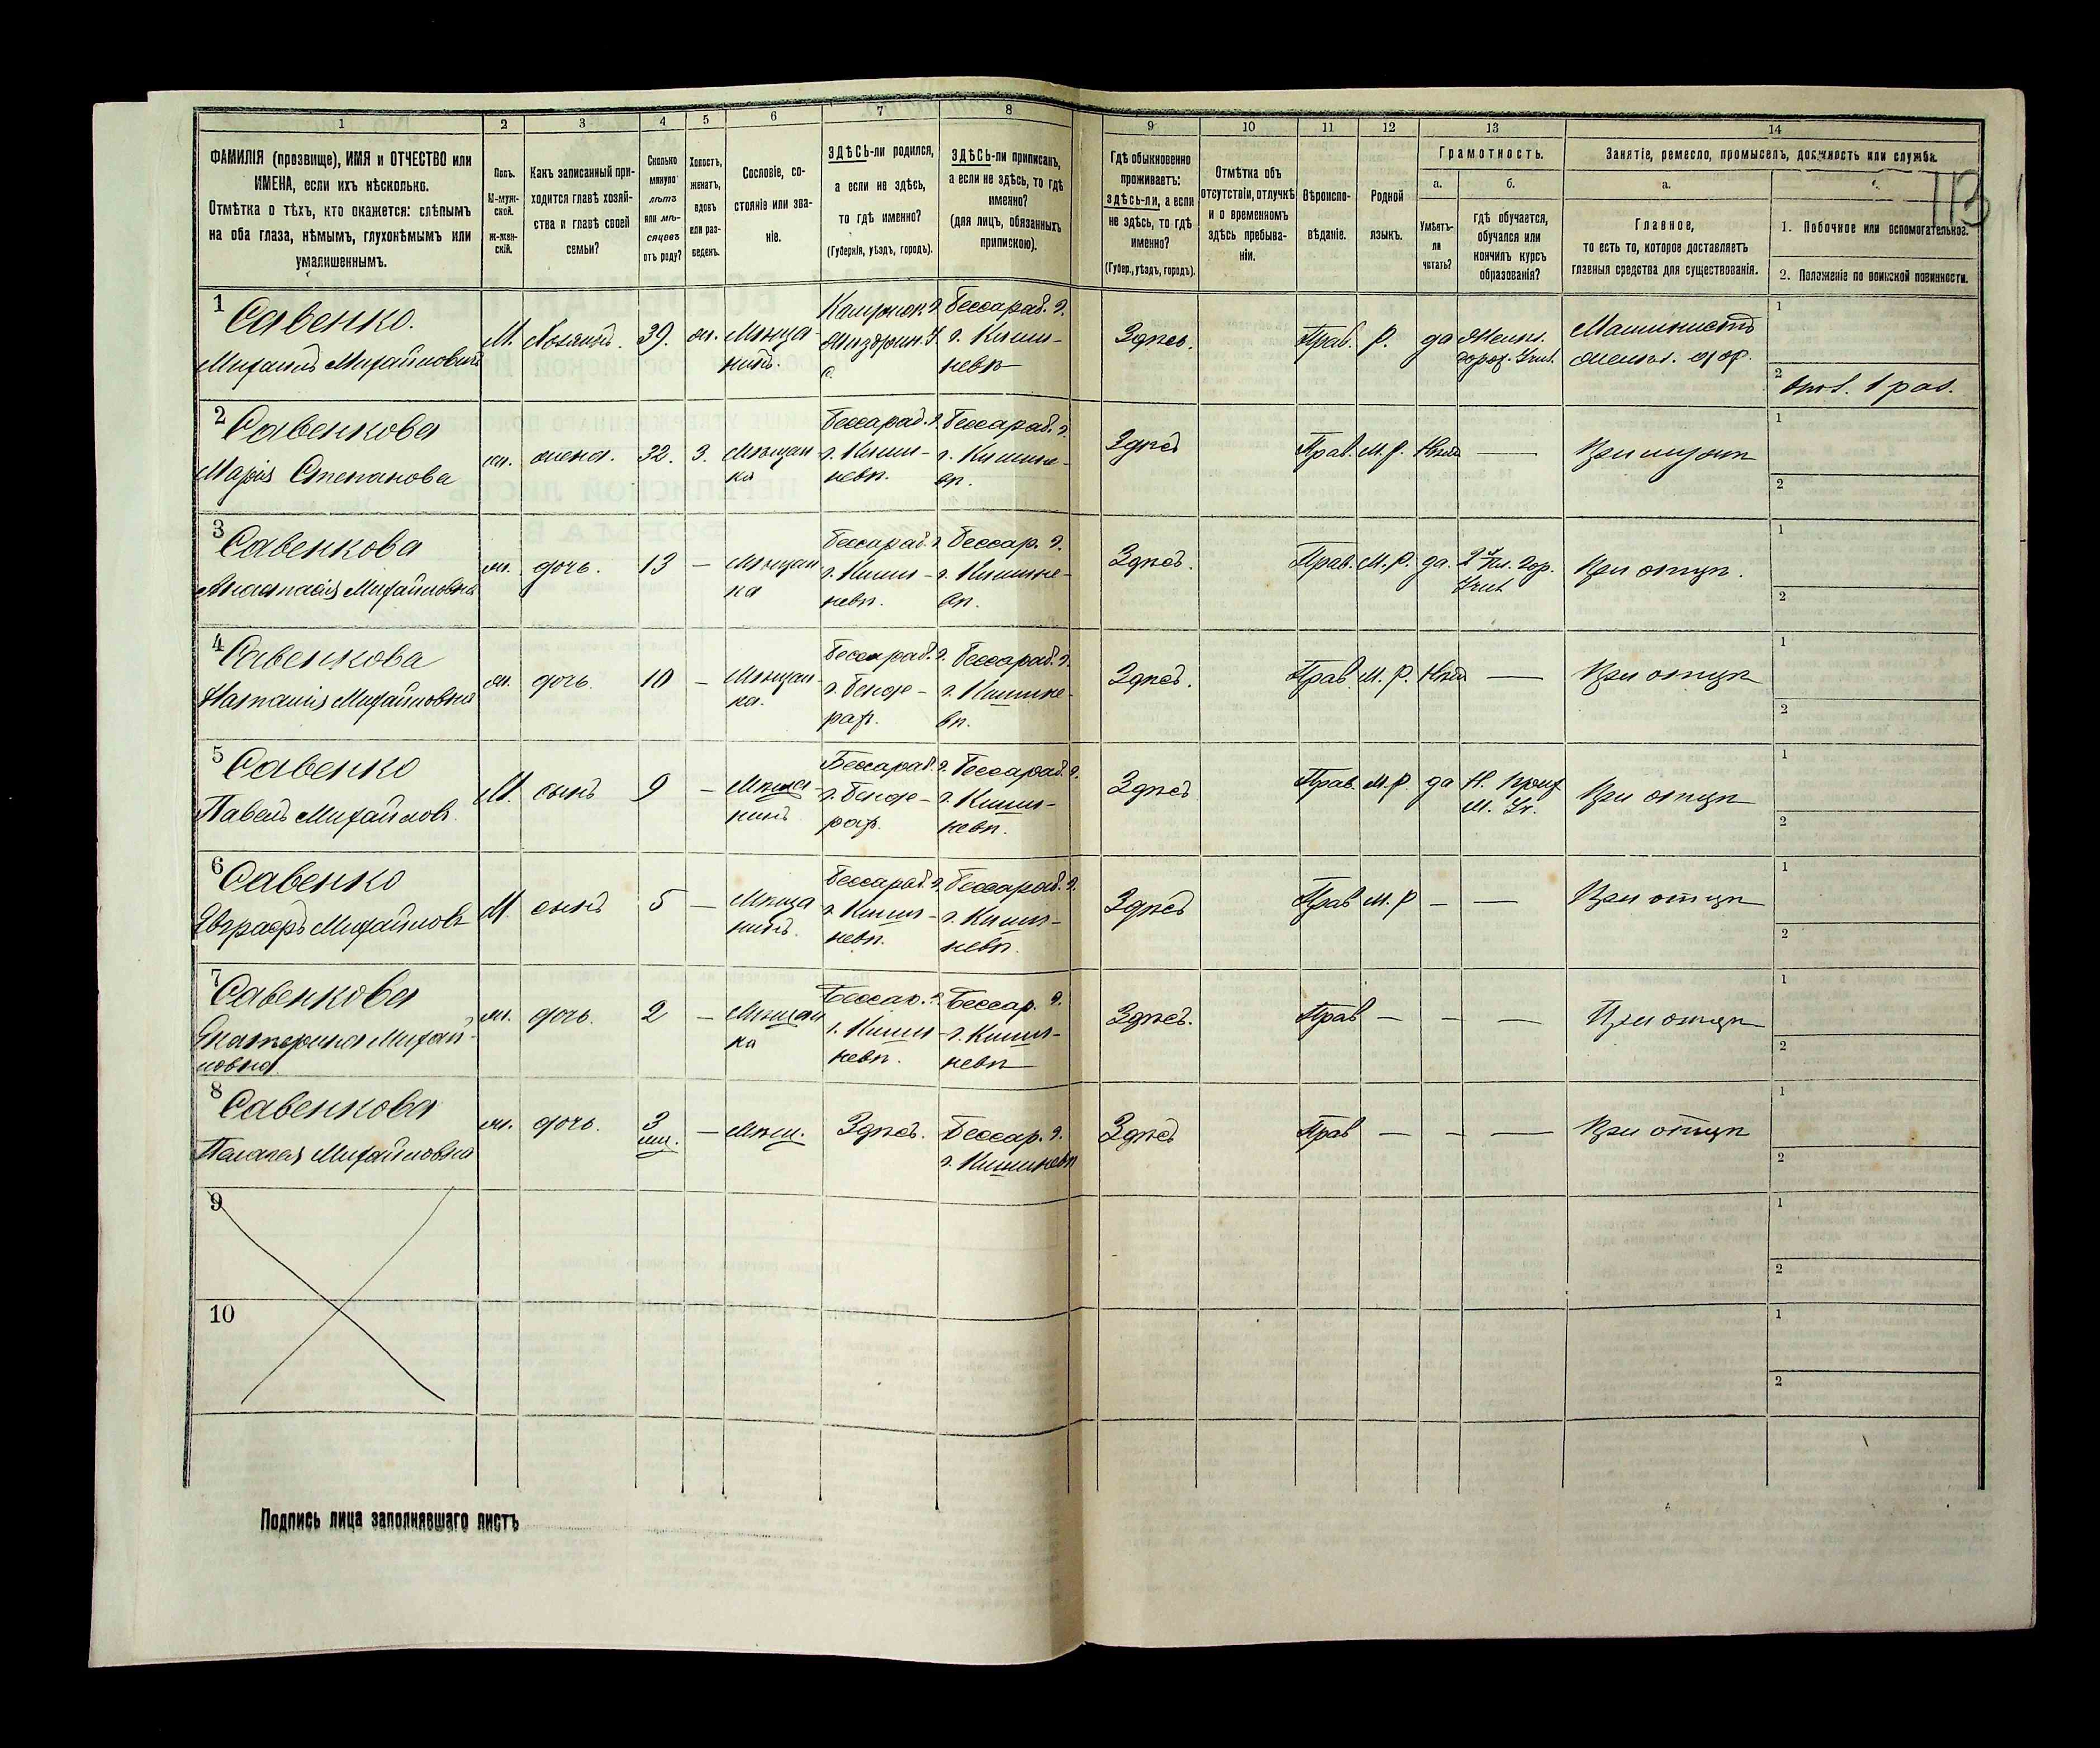 1 2 3 4 5 6 7 8 9 10 11 12 13 14
ФАМИЛІЯ (прозвище), ИМЯ и ОТЧЕСТВО или
ИМЕНА, если ихъ нѣсколько.
Отмѣтка о тѣхъ, кто окажется: слѣпымъ
на оба глаза, нѣмымъ, глухонѣмымъ или
умалишеннымъ.
Полъ.
М-муж-
ской.
Ж-жен-
скій.
Какъ записанный при-
ходится главѣ хозяй-
ства и главѣ своей
семьи?
Сколько
минуло
лѣтъ
или мѣ-
сяцевъ
отъ роду?
Холостъ,
женатъ,
вдовъ
или раз-
веденъ.
Сословіе, со-
стояніе или зва-
ніе.
ЗДѢСЬ-ли родился,
а если не здѣсь,
то гдѣ именно?
(Губернія, уѣздъ, городъ).
ЗДѢСЬ-ли приписанъ,
а если не здѣсь, то гдѣ
именно?
(для лицъ, обязанныхъ
припискою).
Гдѣ обыкновенно
проживаетъ:
здѣсь-ли, а если
не здѣсь, то гдѣ
именно?
(Губер., уѣздъ, городъ).
Отмѣтка объ
отсутствіи, отлучкѣ
и о временномъ
здѣсь пребыва-
ніи.
Вѣроиспо-
вѣданіе.
Родной
языкъ.
Грамотность.
а.
Умѣетъ-
ли
читать?
б.
гдѣ обучается,
обучался или
кончилъ курсъ
образованія?
Занятіе, ремесло, промыселъ, должность или служба.
а.
Главное,
то есть то, которое доставляетъ
главныя средства для существованія.
113
1. Побочное или вспомогательное.
2. Положеніе по воинской повинности.
1 Савенко.
Михаилъ Михайловичъ
М. Хозяинъ. 39. ж. Мѣща-
нинъ.
Бессараб. г.
г. Киши-
невѣ
Здѣсь. Прав. Р. да
Машинистъ
1
2
2 Савенкова
Марія Степанова
ж. жена. 32. З. Мѣщан-
ка
Бессараб. г.
г. Киши-
невѣ.
Бессараб. г.
г. Кишине-
вѣ.
Здѣсь Прав. М. Р. Нѣтъ —
1
2
3 Савенкова
Анастасія Михайловна
ж. дочь. 13 — Мѣщан
ка
Бессараб. г.
г. Киши-
невѣ.
Бессар. г.
г. Кишине-
вѣ.
Здѣсь. Прав. М. Р. да. 2 кл. Гор.
Учил
При отцѣ.
1
2
4 Савенкова
Наталія Михайловна
ж. дочь. 10 — Мѣщан-
ка.
Бессараб. г.
г. Бенде-
рах.
Бессараб. г.
г. Кишине-
вѣ.
Здѣсь. Прав. М. Р. Нѣтъ — При отцѣ
1
2
5 Савенко
Павелъ Михайловъ.
М. сынъ 9 — Мѣща-
нинъ
Бессараб. г.
г. Бенде-
рах.
Бессараб. г.
г. Киши-
невѣ.
Здѣсь Прав. М. Р. да
При отцѣ
1
2
6 Савенко
Евграфъ Михайловъ
М. сынъ 5 — Мѣща
нинъ.
Бессараб. г.
г. Киши-
невѣ.
Бессараб. г.
г. Киши-
невѣ.
Здѣсь Прав М. Р — — При отцѣ
1
2
7 Савенкова
Екатерина Михай-
ловна
ж. дочь. 2 — Мѣщан
ка
Бессар. г.
г. Киши-
невѣ.
Бессар. г.
г. Киши-
невѣ
Здѣсь. Прав — — — При отцѣ
1
2
8 Савенкова
Пелагея Михайловна
ж. дочь. 3
мѣс.
— Мѣщ. Здѣсь. Бессар. г.
г. Кишиневѣ
Здѣсь Прав — — — При отцѣ
1
2
9
1
2
10
1
2
Подпись лица заполнявшаго листъ